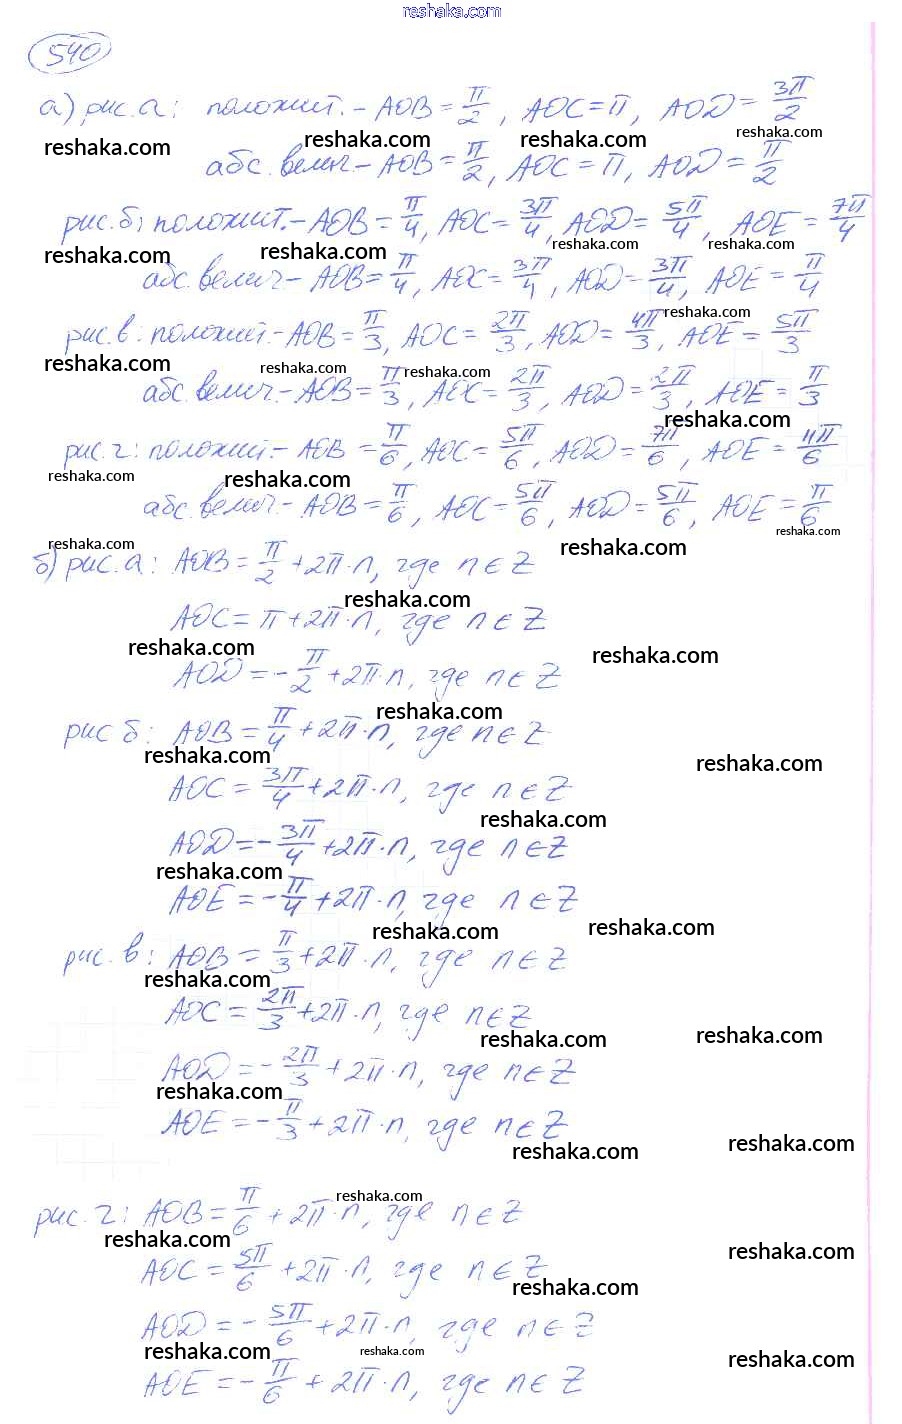 reshaka.com
540
а) рис. а: положит. - AOB = π/2, AOC = π, AOD = 3π/2
reshaka.com reshaka.com reshaka.com reshaka.com
абс. велич - AOB = π/2, AOC = π, AOD = π/2
рис. б; положит. - AOB = π/4, AOC = 3π/4, AOD = 5π/4, AOE = 7π/4
reshaka.com reshaka.com reshaka.com reshaka.com
абс. велич - AOB = π/4, AOC = 3π/4, AOD = 3π/4, AOE = π/4
reshaka.com
рис. в: положит - AOB = π/3, AOC = 2π/3, AOD = 4π/3, AOE = 5π/3
reshaka.com reshaka.com reshaka.com
абс. велич. - AOB = π/3, AOC = 2π/3, AOD = 2π/3, AOE = π/3
reshaka.com
рис. г: положит. - AOB = π/6, AOC = 5π/6, AOD = 7π/6, AOE = 11π/6
reshaka.com reshaka.com
абс. велич - AOB = π/6, AOC = 5π/6, AOD = 5π/6, AOE = π/6
reshaka.com reshaka.com reshaka.com
б) рис. а: AOB = π/2 + 2π·n, где n ∈ Z
reshaka.com
AOC = π + 2π·n, где n ∈ Z
reshaka.com reshaka.com
AOD = -π/2 + 2π·n, где n ∈ Z
reshaka.com
рис б: AOB = π/4 + 2π·n, где n ∈ Z
reshaka.com reshaka.com
AOC = 3π/4 + 2π·n, где n ∈ Z
reshaka.com
AOD = -3π/4 + 2π·n, где n ∈ Z
reshaka.com
AOE = -π/4 + 2π·n, где n ∈ Z
reshaka.com reshaka.com
рис. в: AOB = π/3 + 2π·n, где n ∈ Z
reshaka.com
AOC = 2π/3 + 2π·n, где n ∈ Z
reshaka.com reshaka.com
AOD = -2π/3 + 2π·n, где n ∈ Z
reshaka.com
AOE = -π/3 + 2π·n, где n ∈ Z
reshaka.com reshaka.com
reshaka.com
рис. г: AOB = π/6 + 2π·n, где n ∈ Z
reshaka.com reshaka.com
AOC = 5π/6 + 2π·n, где n ∈ Z
reshaka.com
AOD = -5π/6 + 2π·n, где n ∈ Z
reshaka.com reshaka.com reshaka.com
AOE = -π/6 + 2π·n, где n ∈ Z